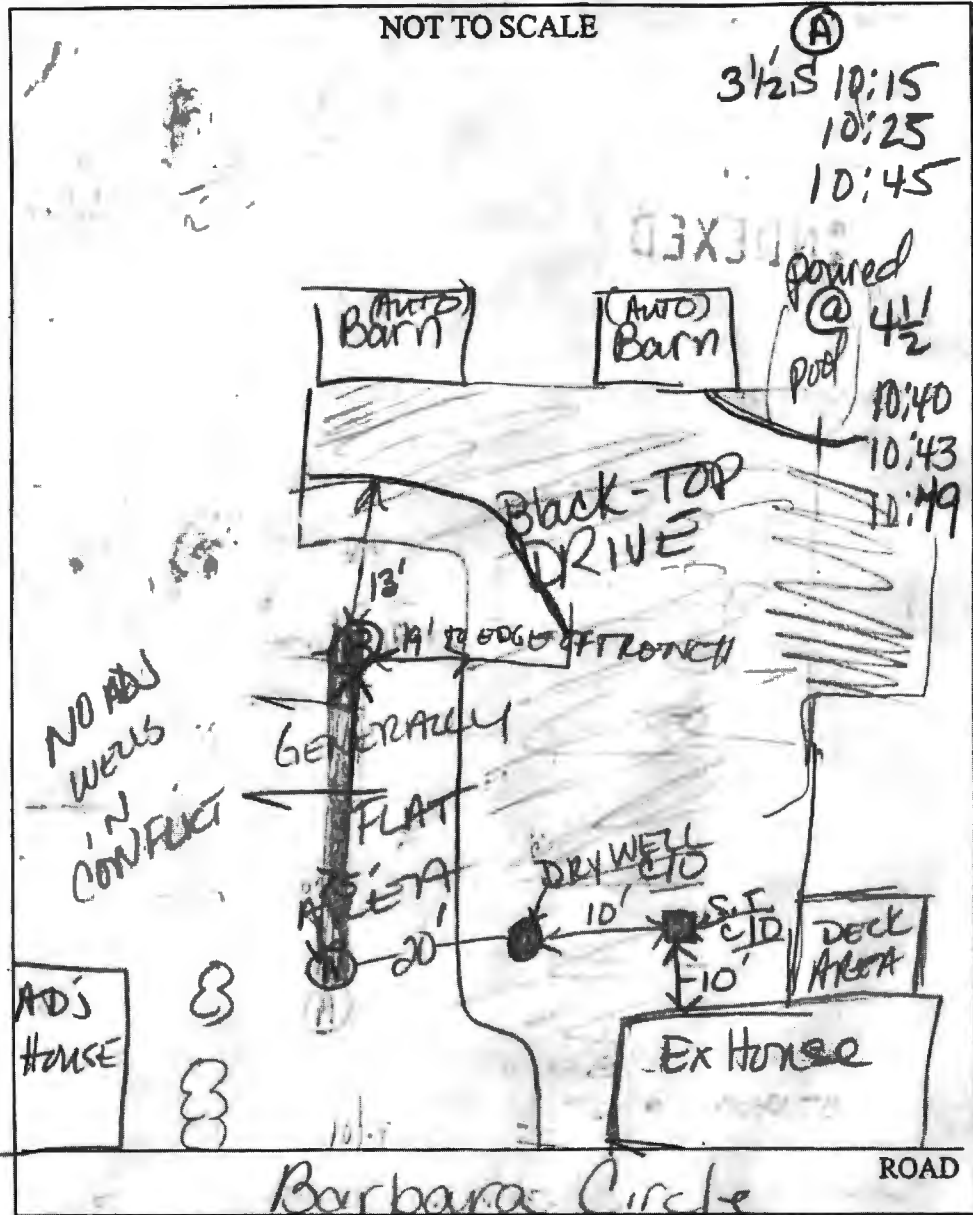 NOT TO SCALE
A
3 1/2 S 10:15
10:25
10:45
INDEXED
poured
@ 4 1/2'
pool
10:40
10:43
(AUTO)
Barn
(AUTO)
Barn
Black-TOP
DRIVE
13'
19' TO EDGE OF TRENCH
NO ADJ
WELLS
IN
CONFLICT
GENERALLY
FLAT
AREA
DRYWELL
C/O
10'
S.T.
C/O
20'
10'
DECK
AREA
ADJ
HOUSE
Ex House
ROAD
Barbara Circle